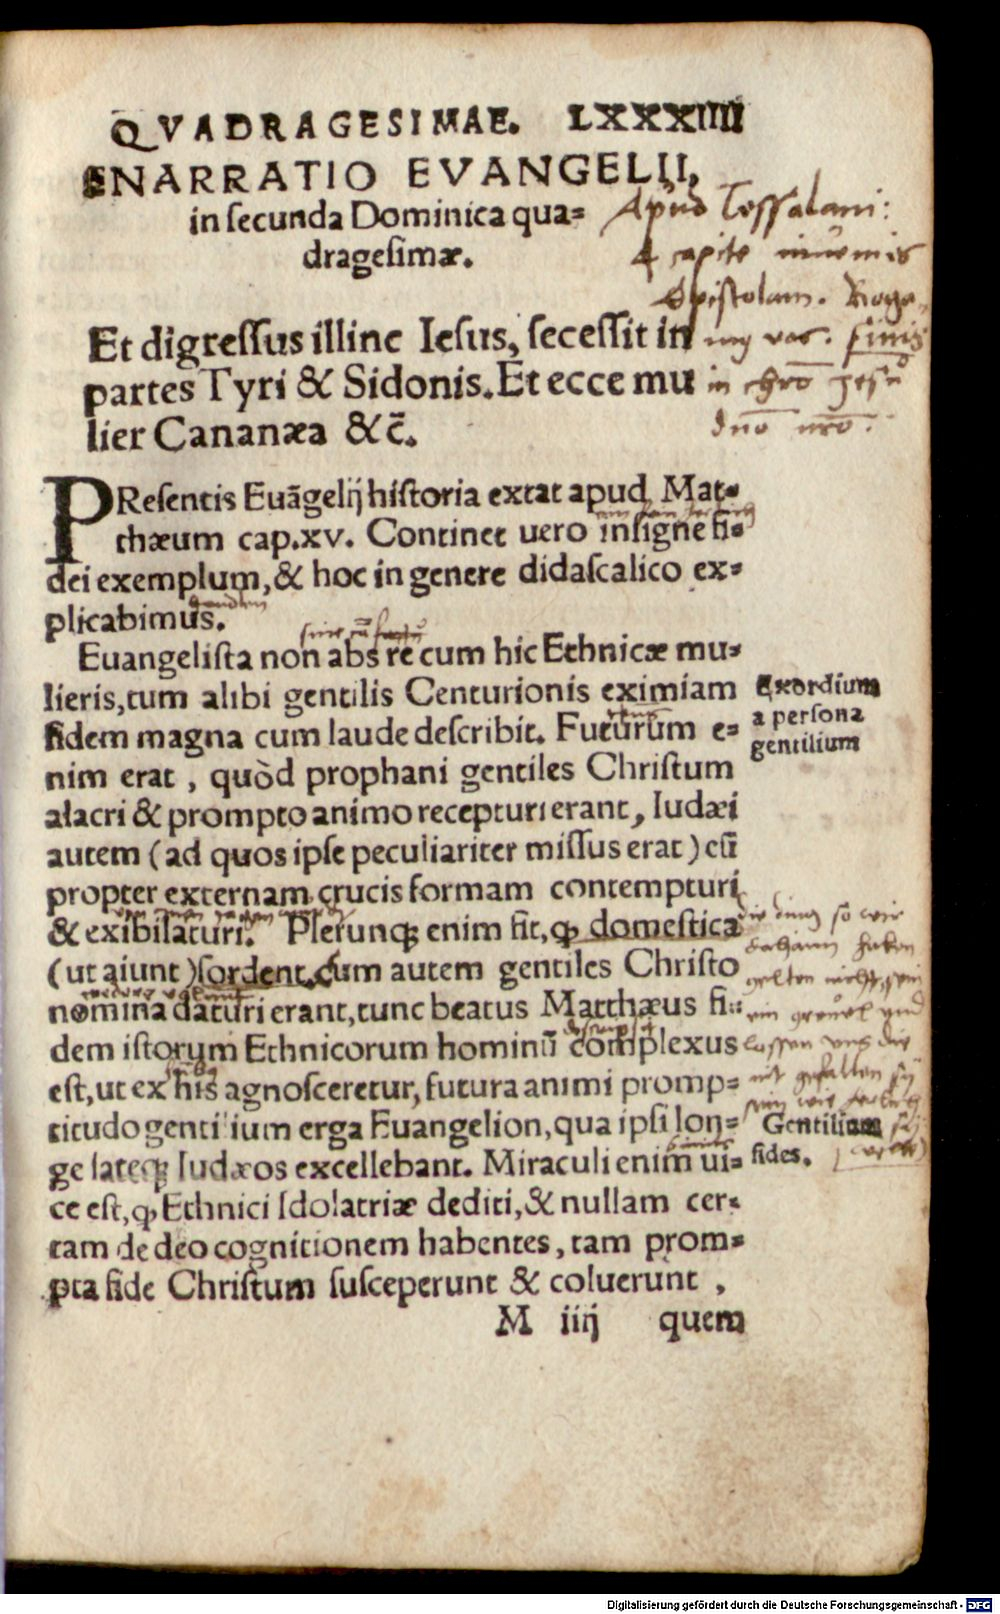 QVADRAGESIMAE. LXXXIIII
ENARRATIO EVANGELII,
in secunda Dominica qua=
dragesimæ.
Apud Tessalani:
4 capite invenis
Epistolam. Roga-
mus vos. finis
in chro Jesu
dno nro.
Et digressus illinc Iesus, secessit in
partes Tyri & Sidonis. Et ecce mu
lier Cananæa &c̄.
PResentis Euāgelij historia extat apud Mat=
thæum cap.xv. Continet uero insigne fi=
dei exemplum, & hoc in genere didascalico ex=
plicabimus.
Euangelista non abs re cum hic Ethnicæ mu=
lieris, tum alibi gentilis Centurionis eximiam
fidem magna cum laude describit. Futurum e=
nim erat, quòd prophani gentiles Christum
alacri & prompto animo recepturi erant, Iudæi
autem (ad quos ipse peculiariter missus erat) cū
propter externam crucis formam contempturi
& exibilaturi. Plerunq; enim fit, ꝙ domestica
(ut aiunt) sordent. Cum autem gentiles Christo
nomina daturi erant, tunc beatus Matthæus fi=
dem istorum Ethnicorum hominū complexus
est, ut ex his agnosceretur, futura animi promp=
titudo gentilium erga Euangelion, qua ipsi lon=
ge lateq; Iudæos excellebant. Miraculi enim ui=
ce est, ꝙ Ethnici Idolatriæ dediti, & nullam cer=
tam de deo cognitionem habentes, tam prom=
pta fide Christum susceperunt & coluerunt,
M iiij quem
Exordium
a persona
gentilium
die ding so wir
gelten nicht, sein
ein greuel und
lassen uns die
nit gefallen
Gentilium
fides.
Digitalisierung gefördert durch die Deutsche Forschungsgemeinschaft - DFG